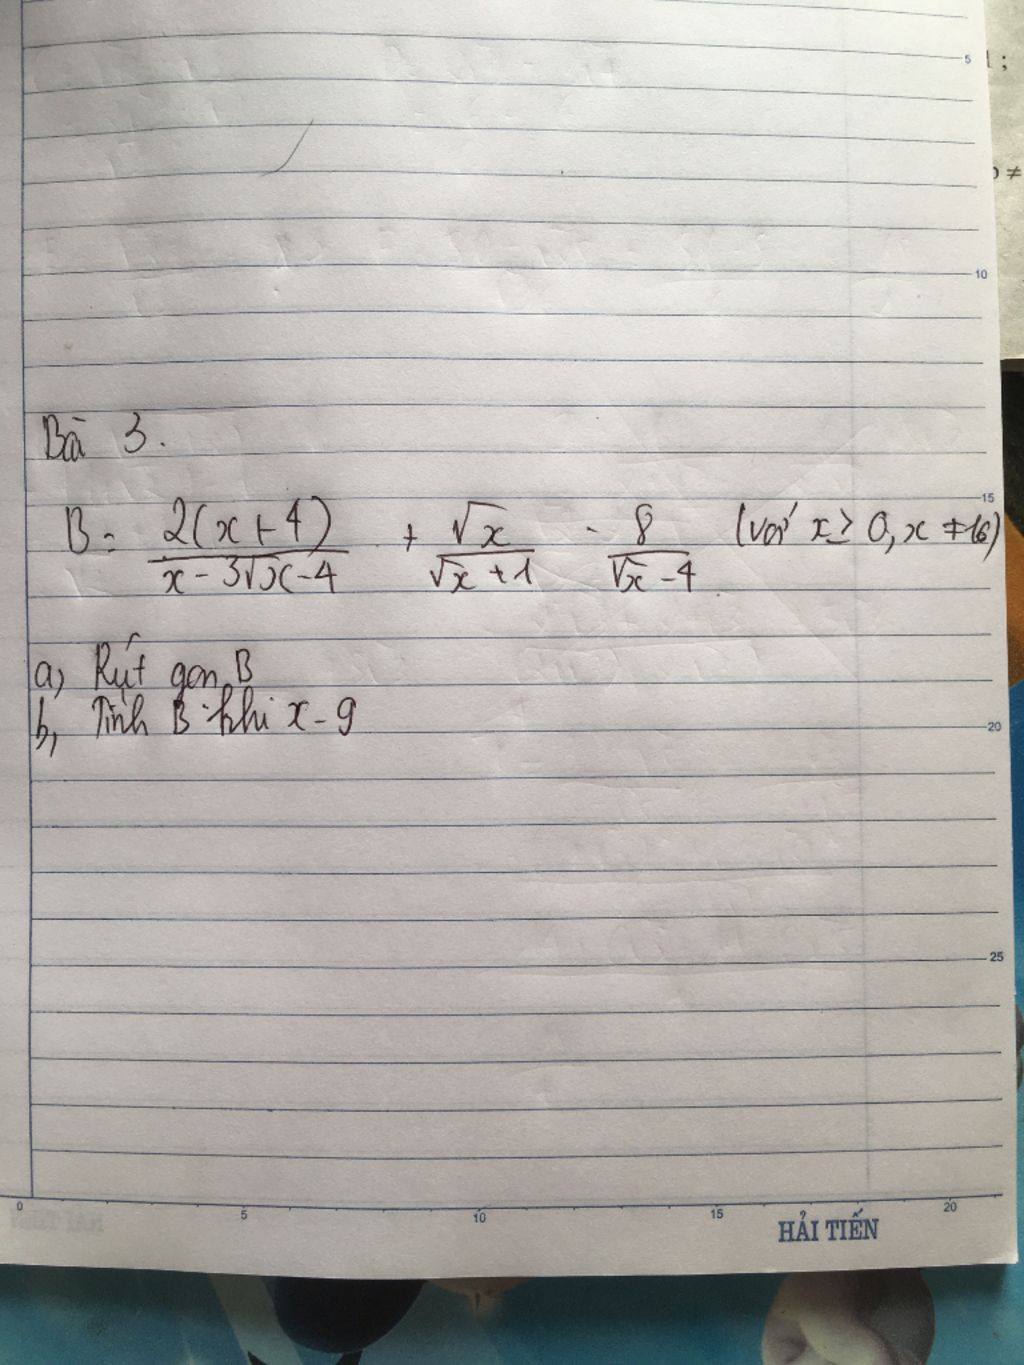 5
1 ;
≠
10
Bà 3.
15
B = \frac{2(x+4)}{x-3\sqrt{x}-4} + \frac{\sqrt{x}}{\sqrt{x}+1} - \frac{8}{\sqrt{x}-4} (với x ≥ 0, x ≠ 16)
a, Rút gọn B
b, Tính B khi x = 9
20
25
0 5 10 15 20
HẢI TIẾN